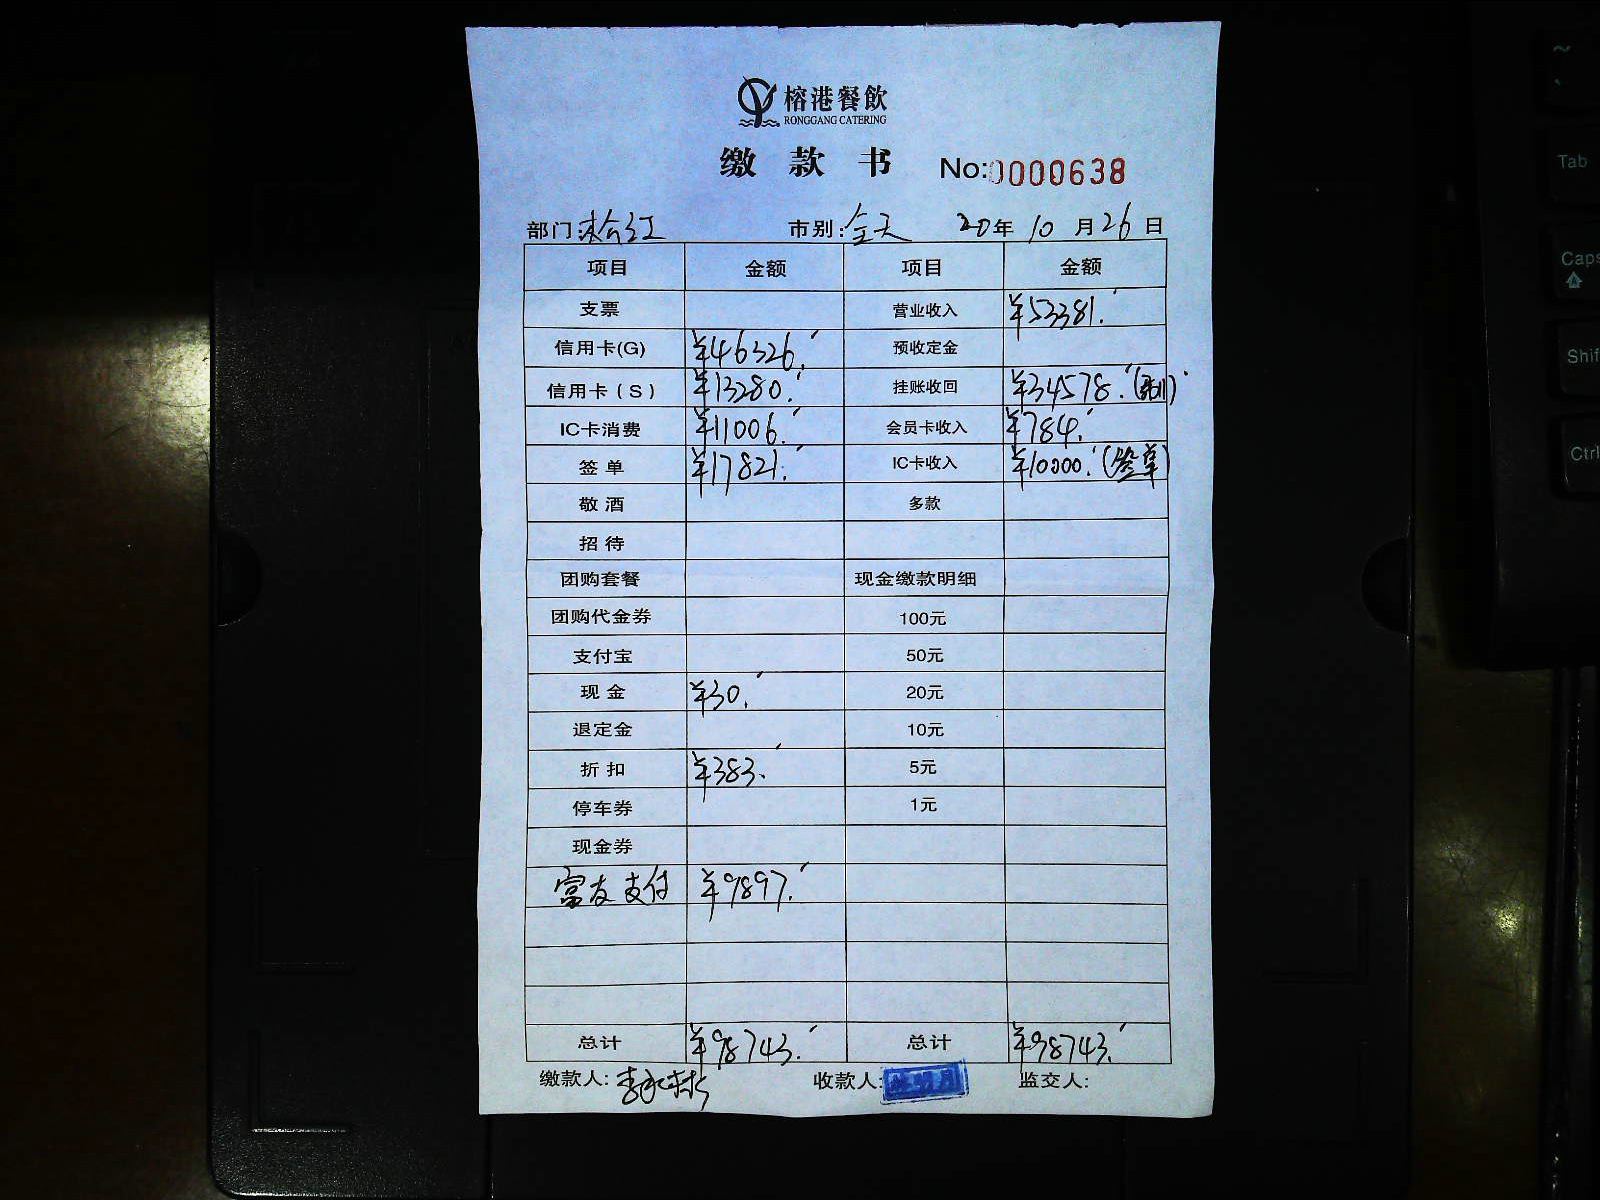 榕港餐飲
RONGGANG CATERING
缴款书 No:0000638
部门: 市别:全天 20年10月26日
项目 金额 项目 金额
支票 营业收入 ¥53381.
信用卡(G) ¥46326. 预收定金
信用卡(S) ¥13280. 挂账收回 ¥34578.
IC卡消费 ¥11006. 会员卡收入 ¥784.
签单 ¥17821. IC卡收入 ¥10000.(签单)
敬酒 多款
招待
团购套餐 现金缴款明细
团购代金券 100元
支付宝 50元
现金 ¥30. 20元
退定金 10元
折扣 ¥383. 5元
停车券 1元
现金券
富友支付 ¥9897.
总计 ¥98743. 总计 ¥98743.
缴款人: 收款人: 监交人:
~
Tab
Caps
Shif
Ctrl